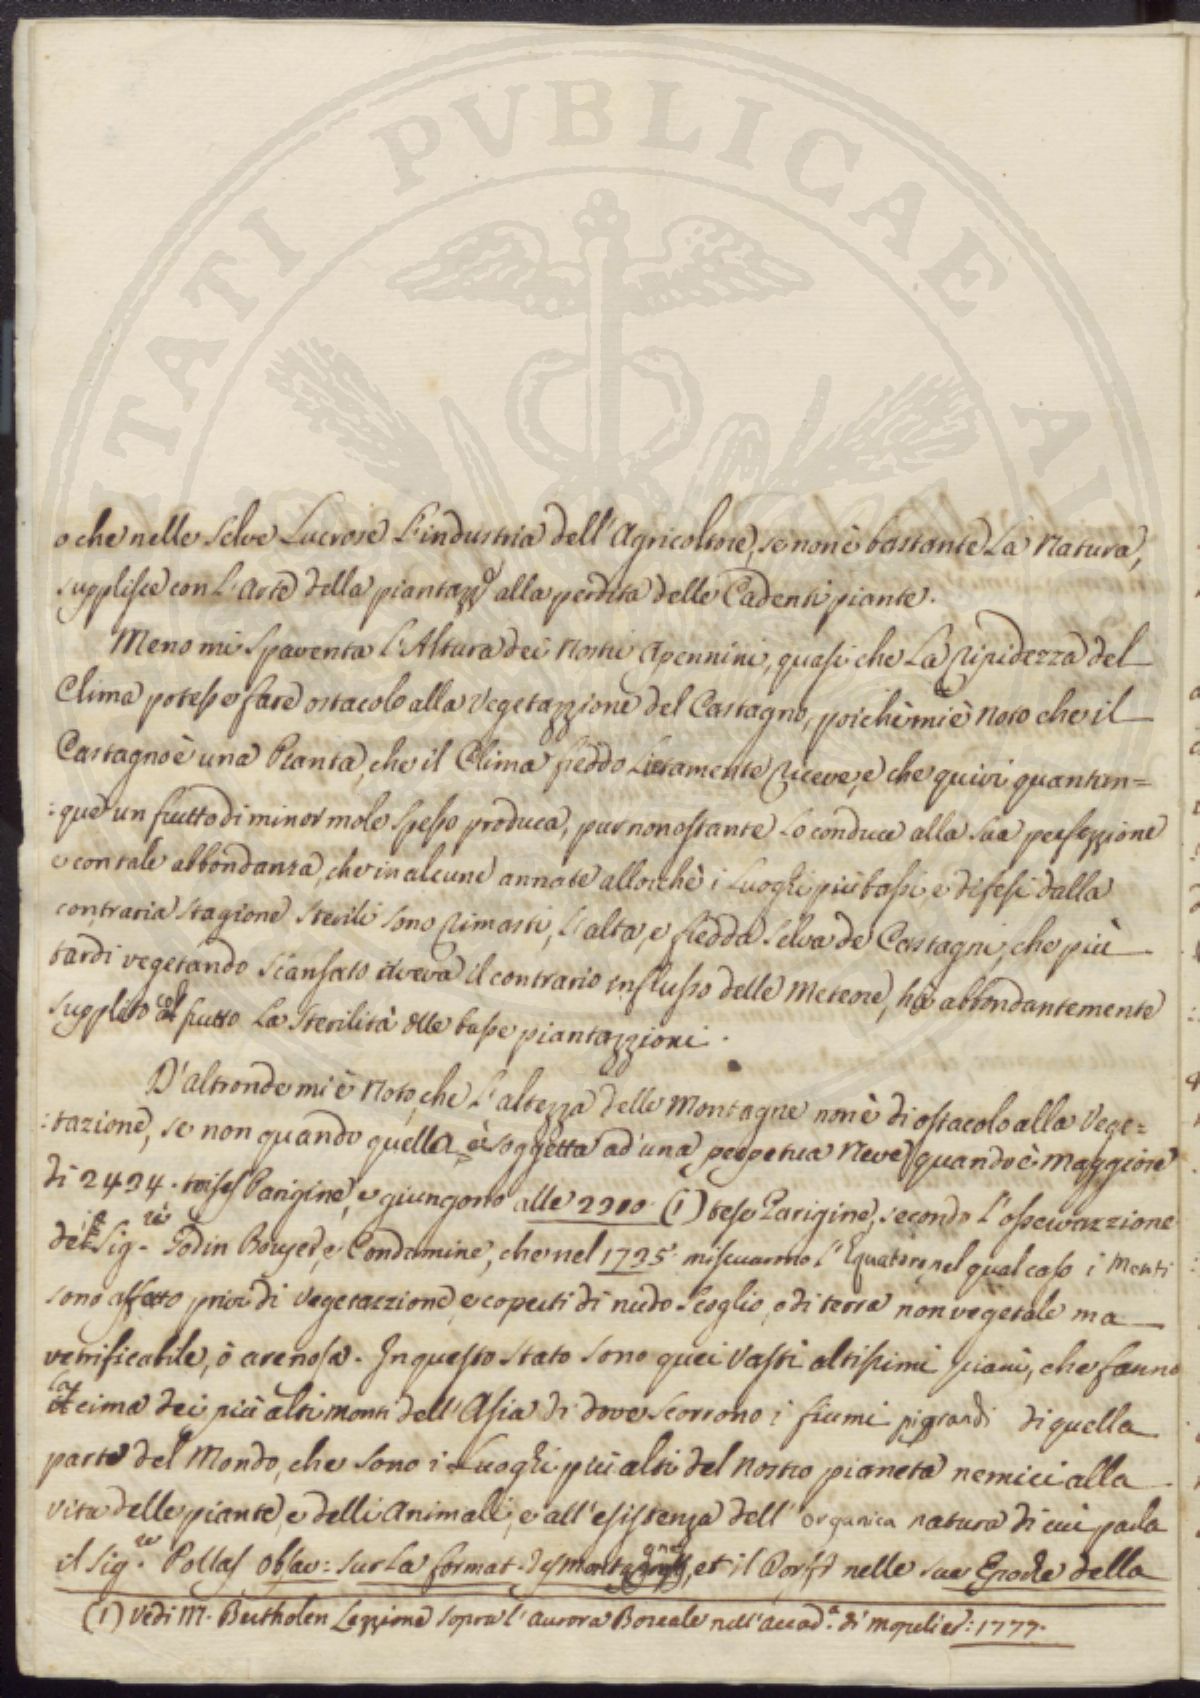 PVBLICAE
ITATI
o che nelle Selve Lucrose L'industria dell'Agricoltore, se non è bastante La Natura,
supplisce con L'Arte della piantazz.e alla perdita delle Cadenti piante.
Meno mi Spaventa L'Altura dei Nostri Apennini, quasi che La Ripidezza del
Clima potesse fare ostacolo alla Vegetazzione del Castagno, poichè mi è Noto che il
Castagno è una Pianta, che il Clima freddo Lietamente Riceve, e che quivi quantun=
:que un frutto di minor mole spesso produca, pur nonostante Lo conduce alla sua perfezzione
e con tale abbondanza, che in alcune annate allorchè i Luoghi più bassi e difesi dalla
contraria Stagione Sterili sono Rimasti, L'alta, e fredda Selva de Castagni, che più
tardi vegetando Scansato aveva il contrario influsso delle Meteore, hà abbondantemente
supplito col frutto La Sterilità delle basse piantazzioni.
D'altronde mi è Noto, che L'altezza delle Montagne non è di ostacolo alla Vege=
:tazione, se non quando quella è soggetta ad una perpetua Neve quando è Maggiore
di 2434. toises Parigine, e giungono alle 2900 (1) tese Parigine, secondo l'osservazzione
dei Sig.ri Godin Bouger, e Condamine, che nel 1735. misurarono l'Equatore, nel qual caso i Monti
sono affatto privi di Vegetazzione, e coperti di nudo Scoglio, o di terra non vegetale ma
vetrificabile, ò arenosa. In questo Stato Sono quei Vasti altissimi piani, che fanno
la cima dei più alti Monti dell'Asia di dove Scorrono i fiumi più grandi di quella
parte del Mondo, che Sono i Luoghi più alti del Nostro pianeta nemici alla
vita delle piante, e delli Animali, e all'esistenza dell'organica natura di cui parla
il Sig.re Pallas Obser: sur La format. des montagnes, et il nelle sue Epoche della
(1) Vedi M. Bertholen Lezzione sopra l'Aurora Boreale nell'Accad.a di Mopelier: 1777.